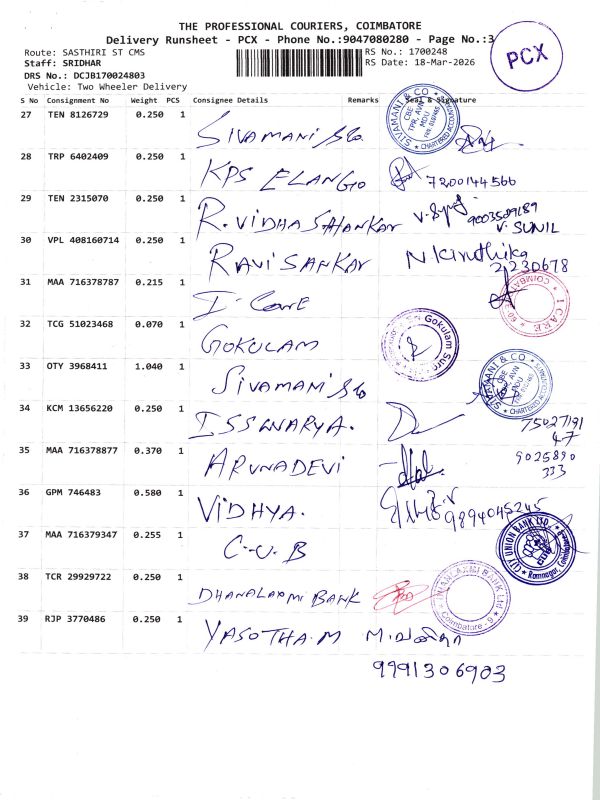 THE PROFESSIONAL COURIERS, COIMBATORE
Delivery Runsheet - PCX - Phone No.:9047080280 - Page No.:3
PCX
Route: SASTHIRI ST CMS
RS No.: 1700248
Staff: SRIDHAR
RS Date: 18-Mar-2026
DRS No.: DCJB170024803
Vehicle: Two Wheeler Delivery
S No Consignment No Weight PCS Consignee Details Remarks Seal & Signature
27 TEN 8126729 0.250 1 SIVAMANI & Co.
SIVAMANI & CO CHARTERED ACCOUNTANTS
28 TRP 6402409 0.250 1 KPS ELANGO 7200144566
29 TEN 2315070 0.250 1 R. VIDHASHANKAR 9003509189
V. SUNIL
30 VPL 408160714 0.250 1 RAVISANKAR N Kiruthika
2230678
31 MAA 716378787 0.215 1 I-Care
I CARE
32 TCG 51023468 0.070 1 GOKULAM
Sri Gokulam
33 OTY 3968411 1.040 1 SIVAMANI & Co
SIVAMANI & CO CHARTERED ACCOUNTANTS
34 KCM 13656220 0.250 1 ISSWARYA. 75027191
47
35 MAA 716378877 0.370 1 ARUNADEVI 9025890
333
36 GPM 746483 0.580 1 VIDHYA. 9894045245
37 MAA 716379347 0.255 1 C-U-B
CITY UNION BANK LTD., Ramnagar, Coimbatore
38 TCR 29929722 0.250 1 DHANALAXMI BANK
Coimbatore - 9
39 RJP 3770486 0.250 1 YASOTHA.M
9991306903